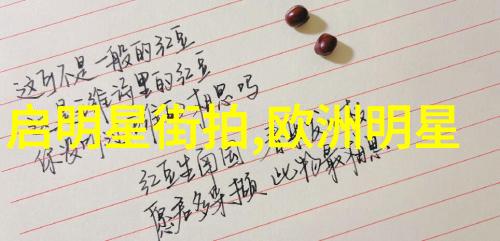 这可不是一般的红豆
维诗里的红豆
你没 相思吗
启明星街拍,欧洲明星
红豆生南国
愿君多采撷 此物最相思